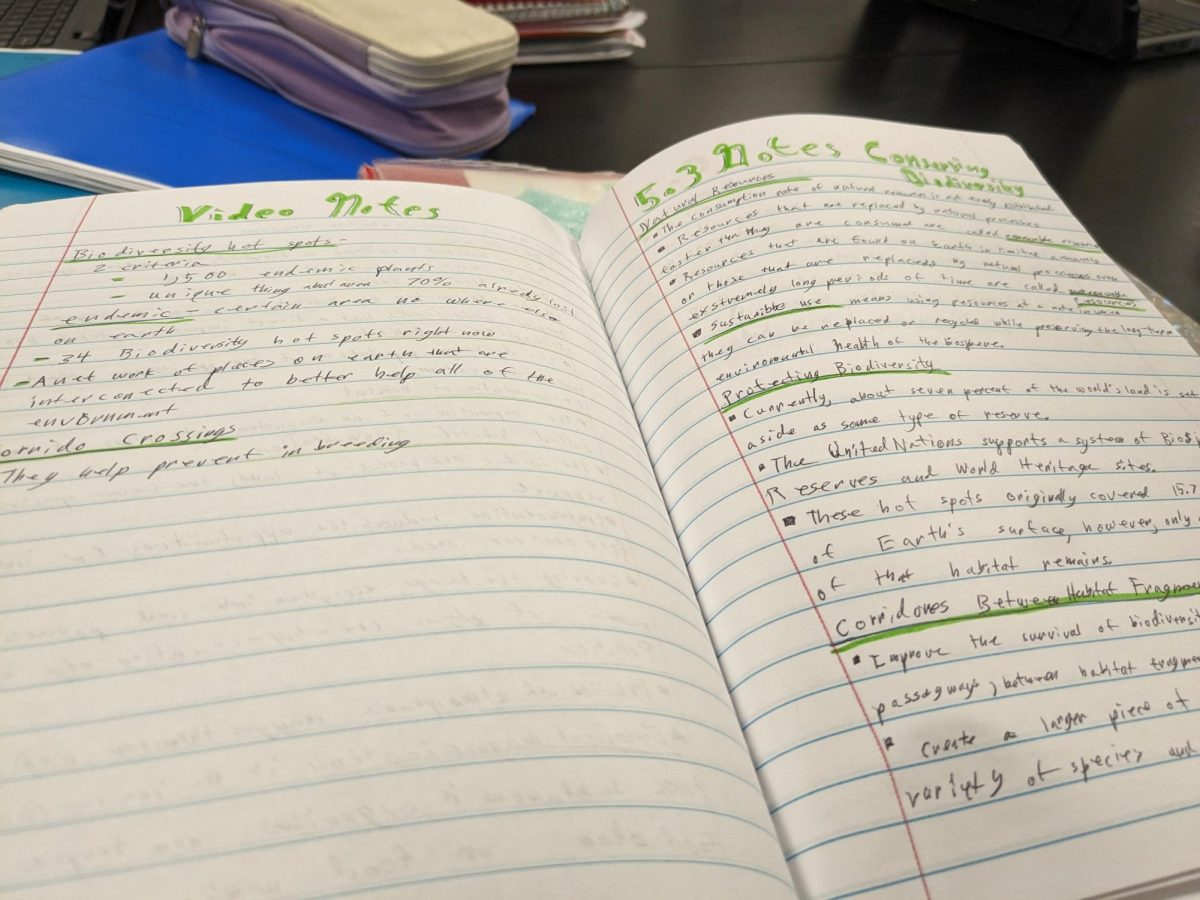 Video Notes
Biodiversity hot spots-
2 criteria
- 1,500 endemic plants
- unique thing 70% already lost
endemic - certain area no where else
on earth
- 34 Biodiversity hot spots right now
- A net work of places on earth that are
interconected to better help all of the
Crossings
They help prevent in breeding
5.3 Notes Conserving
Biodiversity
Natural Resources
• The consumption rate of natural resources is not evenly distributed.
• Resources that are replaced by natural processes
faster than they are consumed are called renewable
• Resources that are found on Earth in limited amounts
or those that are replaced by natural processes over
extremely long periods of time are called
Resources
• Sustanible use means using resources at a rate in which
they can be replaced or recycled while preserving the long-term
enviromental health of the biosphere.
Protecting Biodiversity
• Currently, about seven percent of the world's land is set
aside as some type of reserve.
• The United Nations supports a system of
Reserves and World Heritage sites.
▪ These hot spots originally covered 15.7
of Earth's surface, however, only
of that habitat remains.
Corridores Between Habitat
▪ Improve the survival of
passagways, between habitat
▪ Create a larger piece of
variety of species and